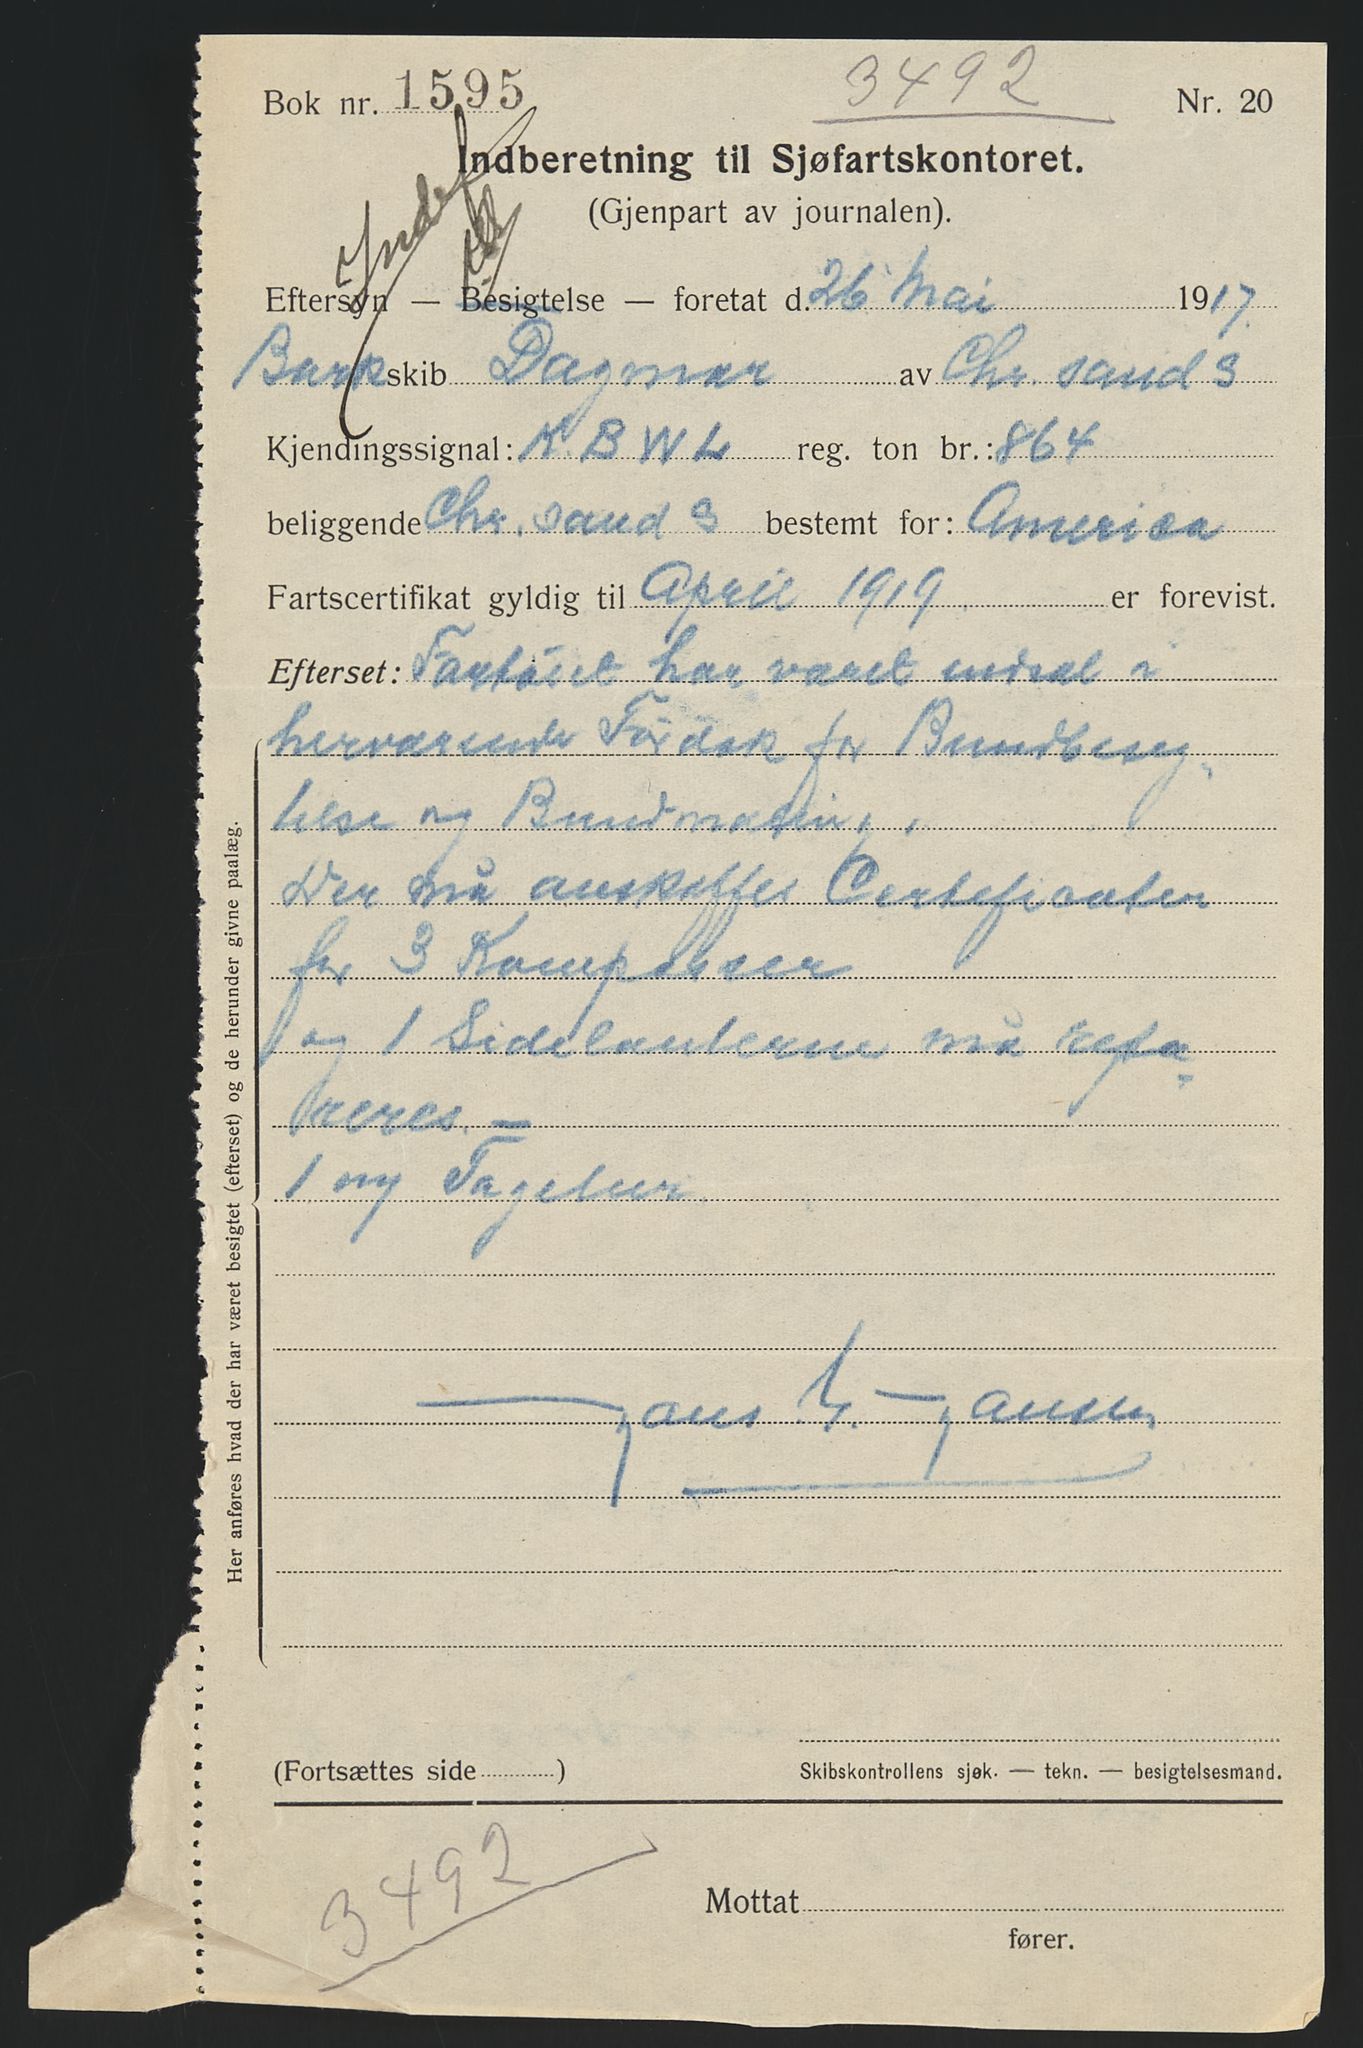 Bok nr. 1595
3492
Nr. 20
Indberetning til Sjøfartskontoret.
(Gjenpart av journalen).
Eftersyn — Besigtelse — foretat d. 26 Mai 1917.
Barkskib Dagmar av Chr. sand S
Kjendingssignal: K. B W L reg. ton br.: 864
beliggende Chr. sand S bestemt for: America
Fartscertifikat gyldig til April 1919 er forevist.
Efterset: Fartöiet har været indsat i
herværende Tördok for Bundbesig-
telse og
Der må anskaffes Certeficater
for 3 Kompasser
og 1 Sidelanterne må repa-
reres. —
1 ny
Her anføres hvad der har været besigtet (efterset) og de herunder givne paalæg.
(Fortsættes side ........ )
Skibskontrollens sjøk. — tekn. — besigtelsesmand.
3492
Mottat
fører.